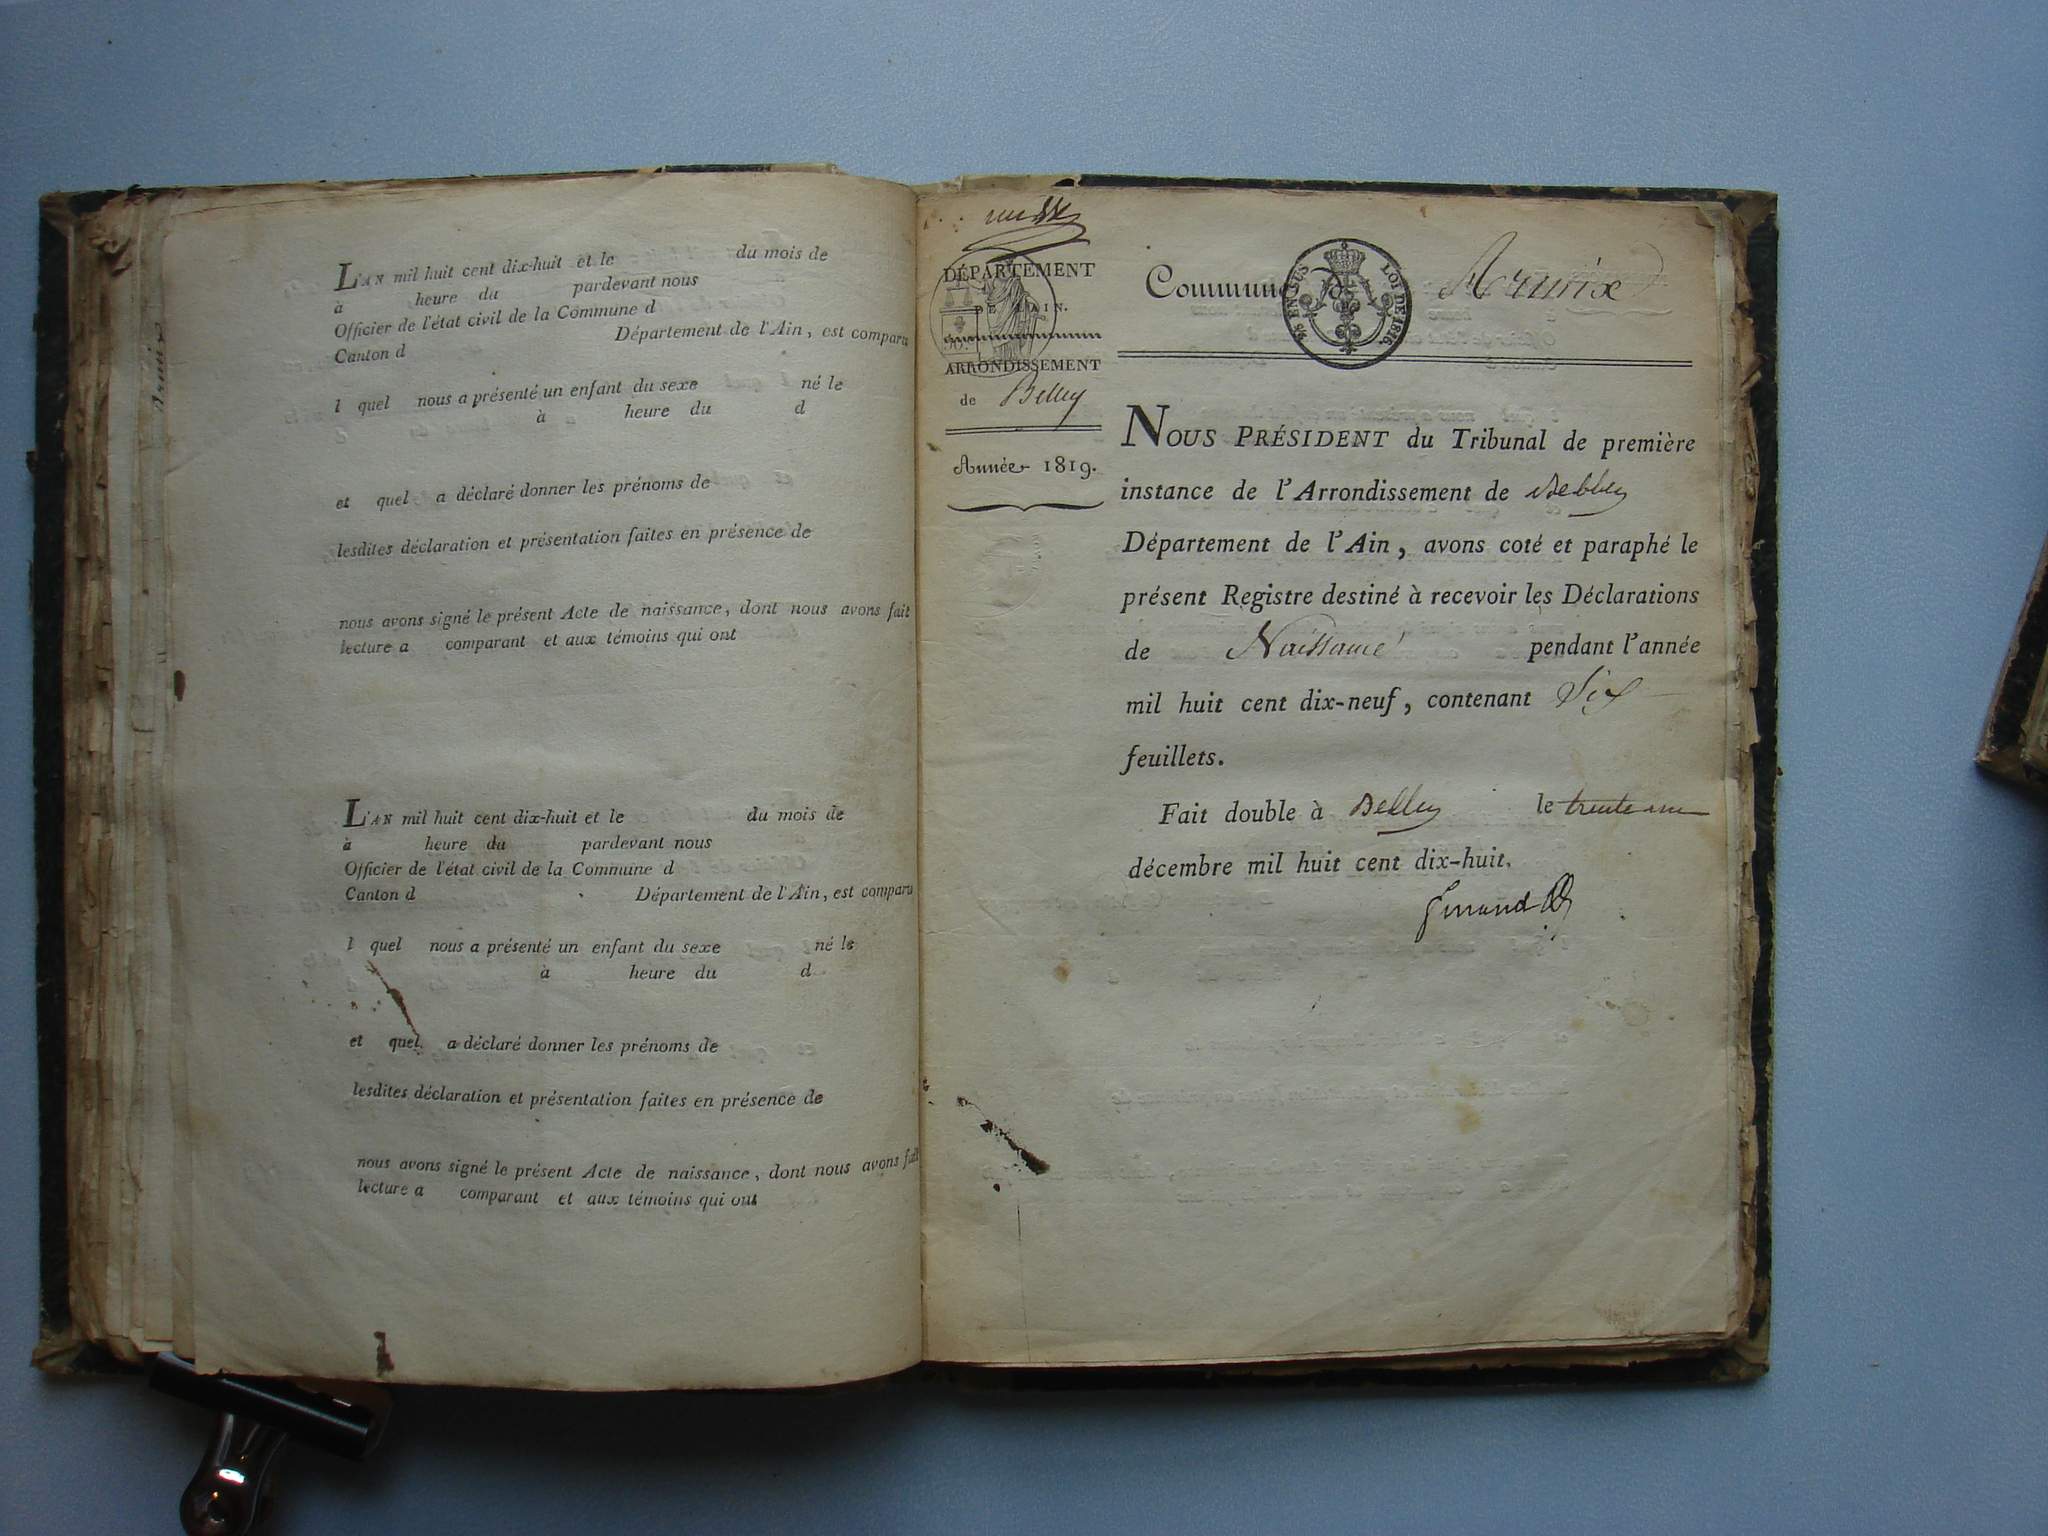 L'AN mil huit cent dix-huit et le du mois de
à heure du pardevant nous
Officier de l'état civil de la Commune d
Canton d Département de l'Ain, est comparu
l quel nous a présenté un enfant du sexe né le
à heure du d
et quel a déclaré donner les prénoms de
lesdites déclaration et présentation faites en présence de
nous avons signé le présent Acte de naissance, dont nous avons fait
lecture a comparant et aux témoins qui ont
L'AN mil huit cent dix-huit et le du mois de
à heure du pardevant nous
Officier de l'état civil de la Commune d
Canton d Département de l'Ain, est comparu
l quel nous a présenté un enfant du sexe né le
à heure du d
et quel a déclaré donner les prénoms de
lesdites déclaration et présentation faites en présence de
nous avons signé le présent Acte de naissance, dont nous avons fait
lecture a comparant et aux témoins qui ont
DÉPARTEMENT
DE L'AIN.
ARRONDISSEMENT
de Belley
Année 1819.
Commune d
EN SUS LOI DE 1816.
NOUS PRÉSIDENT du Tribunal de première
instance de l'Arrondissement de Belley
Département de l'Ain, avons coté et paraphé le
présent Registre destiné à recevoir les Déclarations
de Naissance pendant l'année
mil huit cent dix-neuf, contenant Six
feuillets.
Fait double à Belley le trente un
décembre mil huit cent dix-huit.